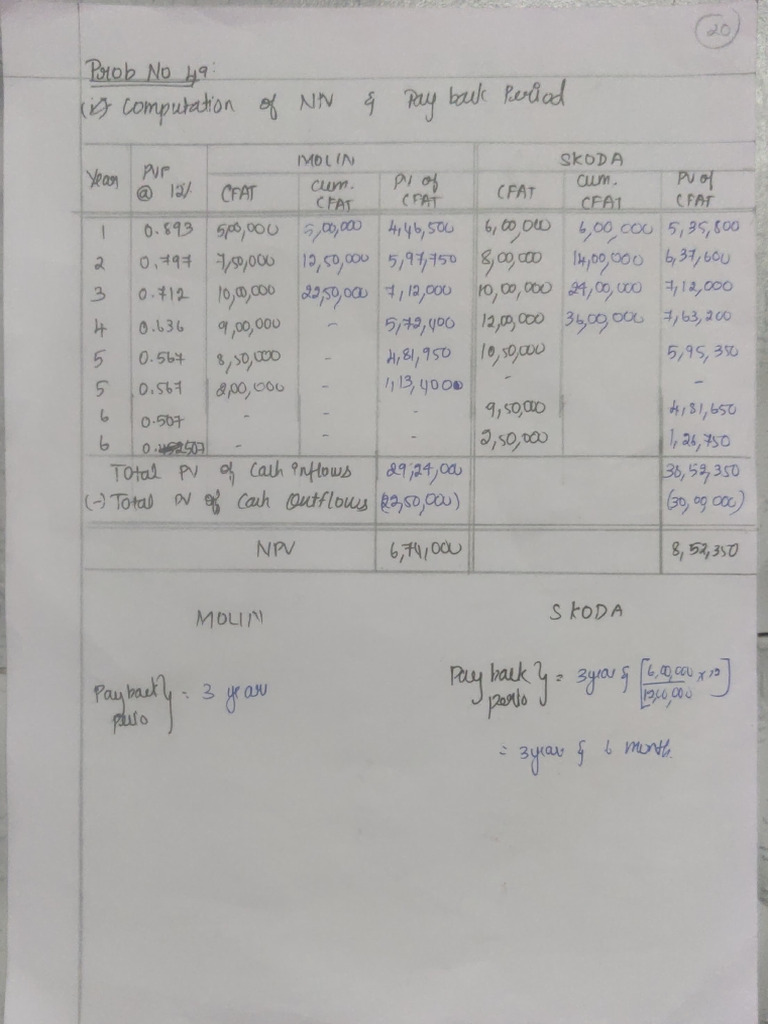 20
Prob No 49:
(i) Computation of NPV & Pay back Period
MOLIN SKODA
Year PVF @ 12% CFAT Cum. CFAT PV of CFAT CFAT Cum. CFAT PV of CFAT
1 0.893 5,00,000 5,00,000 4,46,500 6,00,000 6,00,000 5,35,800
2 0.797 7,50,000 12,50,000 5,97,750 8,00,000 14,00,000 6,37,600
3 0.712 10,00,000 22,50,000 7,12,000 10,00,000 24,00,000 7,12,000
4 0.636 9,00,000 - 5,72,400 12,00,000 36,00,000 7,63,200
5 0.567 8,50,000 - 4,81,950 10,50,000 5,95,350
5 0.567 2,00,000 - 1,13,400 - -
6 0.507 - - - 9,50,000 4,81,650
6 0.507 - - - 2,50,000 1,26,750
Total PV of Cash Inflows 29,24,000 38,52,350
(-) Total PV of Cash Outflows (22,50,000) (30,00,000)
NPV 6,74,000 8,52,350
MOLIN SKODA
Pay back perio } = 3 year
Pay back perio } = 3 year & [6,00,000/12,00,000 x 12]
= 3 year & 6 month.